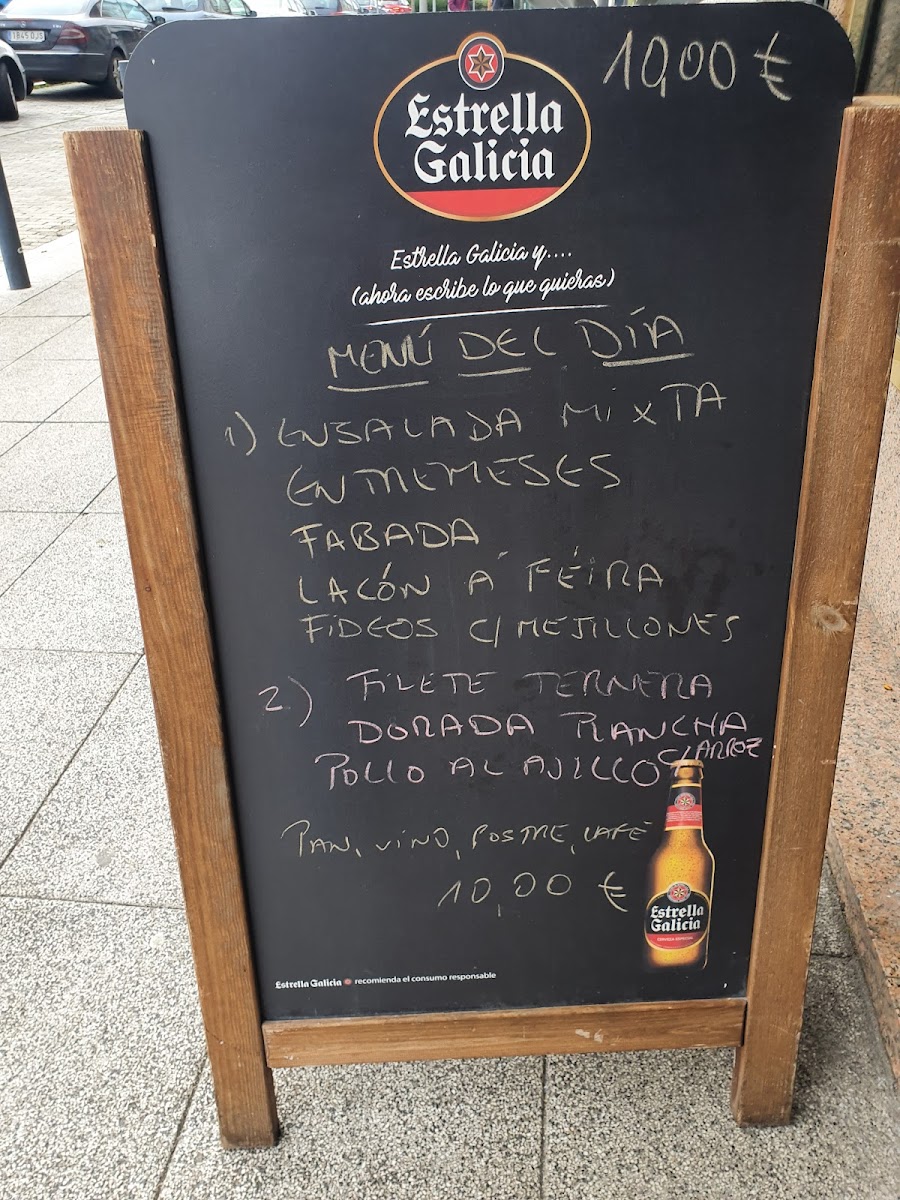 1845 DJS
10,00 €
Estrella
Galicia
Estrella Galicia y....
(ahora escribe lo que quieras)
MENÚ DEL DÍA
1) ENSALADA MIXTA
ENTREMESES
FABADA
LACÓN Á FÉIRA
FIDEOS C/MEJILLONES
2) FILETE TERNERA
DORADA PLANCHA
POLLO AL AJILLO C/ARROZ
PAN, VINO, POSTRE, CAFÉ
10,00 €
Estrella
Galicia
CERVEZA ESPECIAL
Estrella Galicia recomienda el consumo responsable